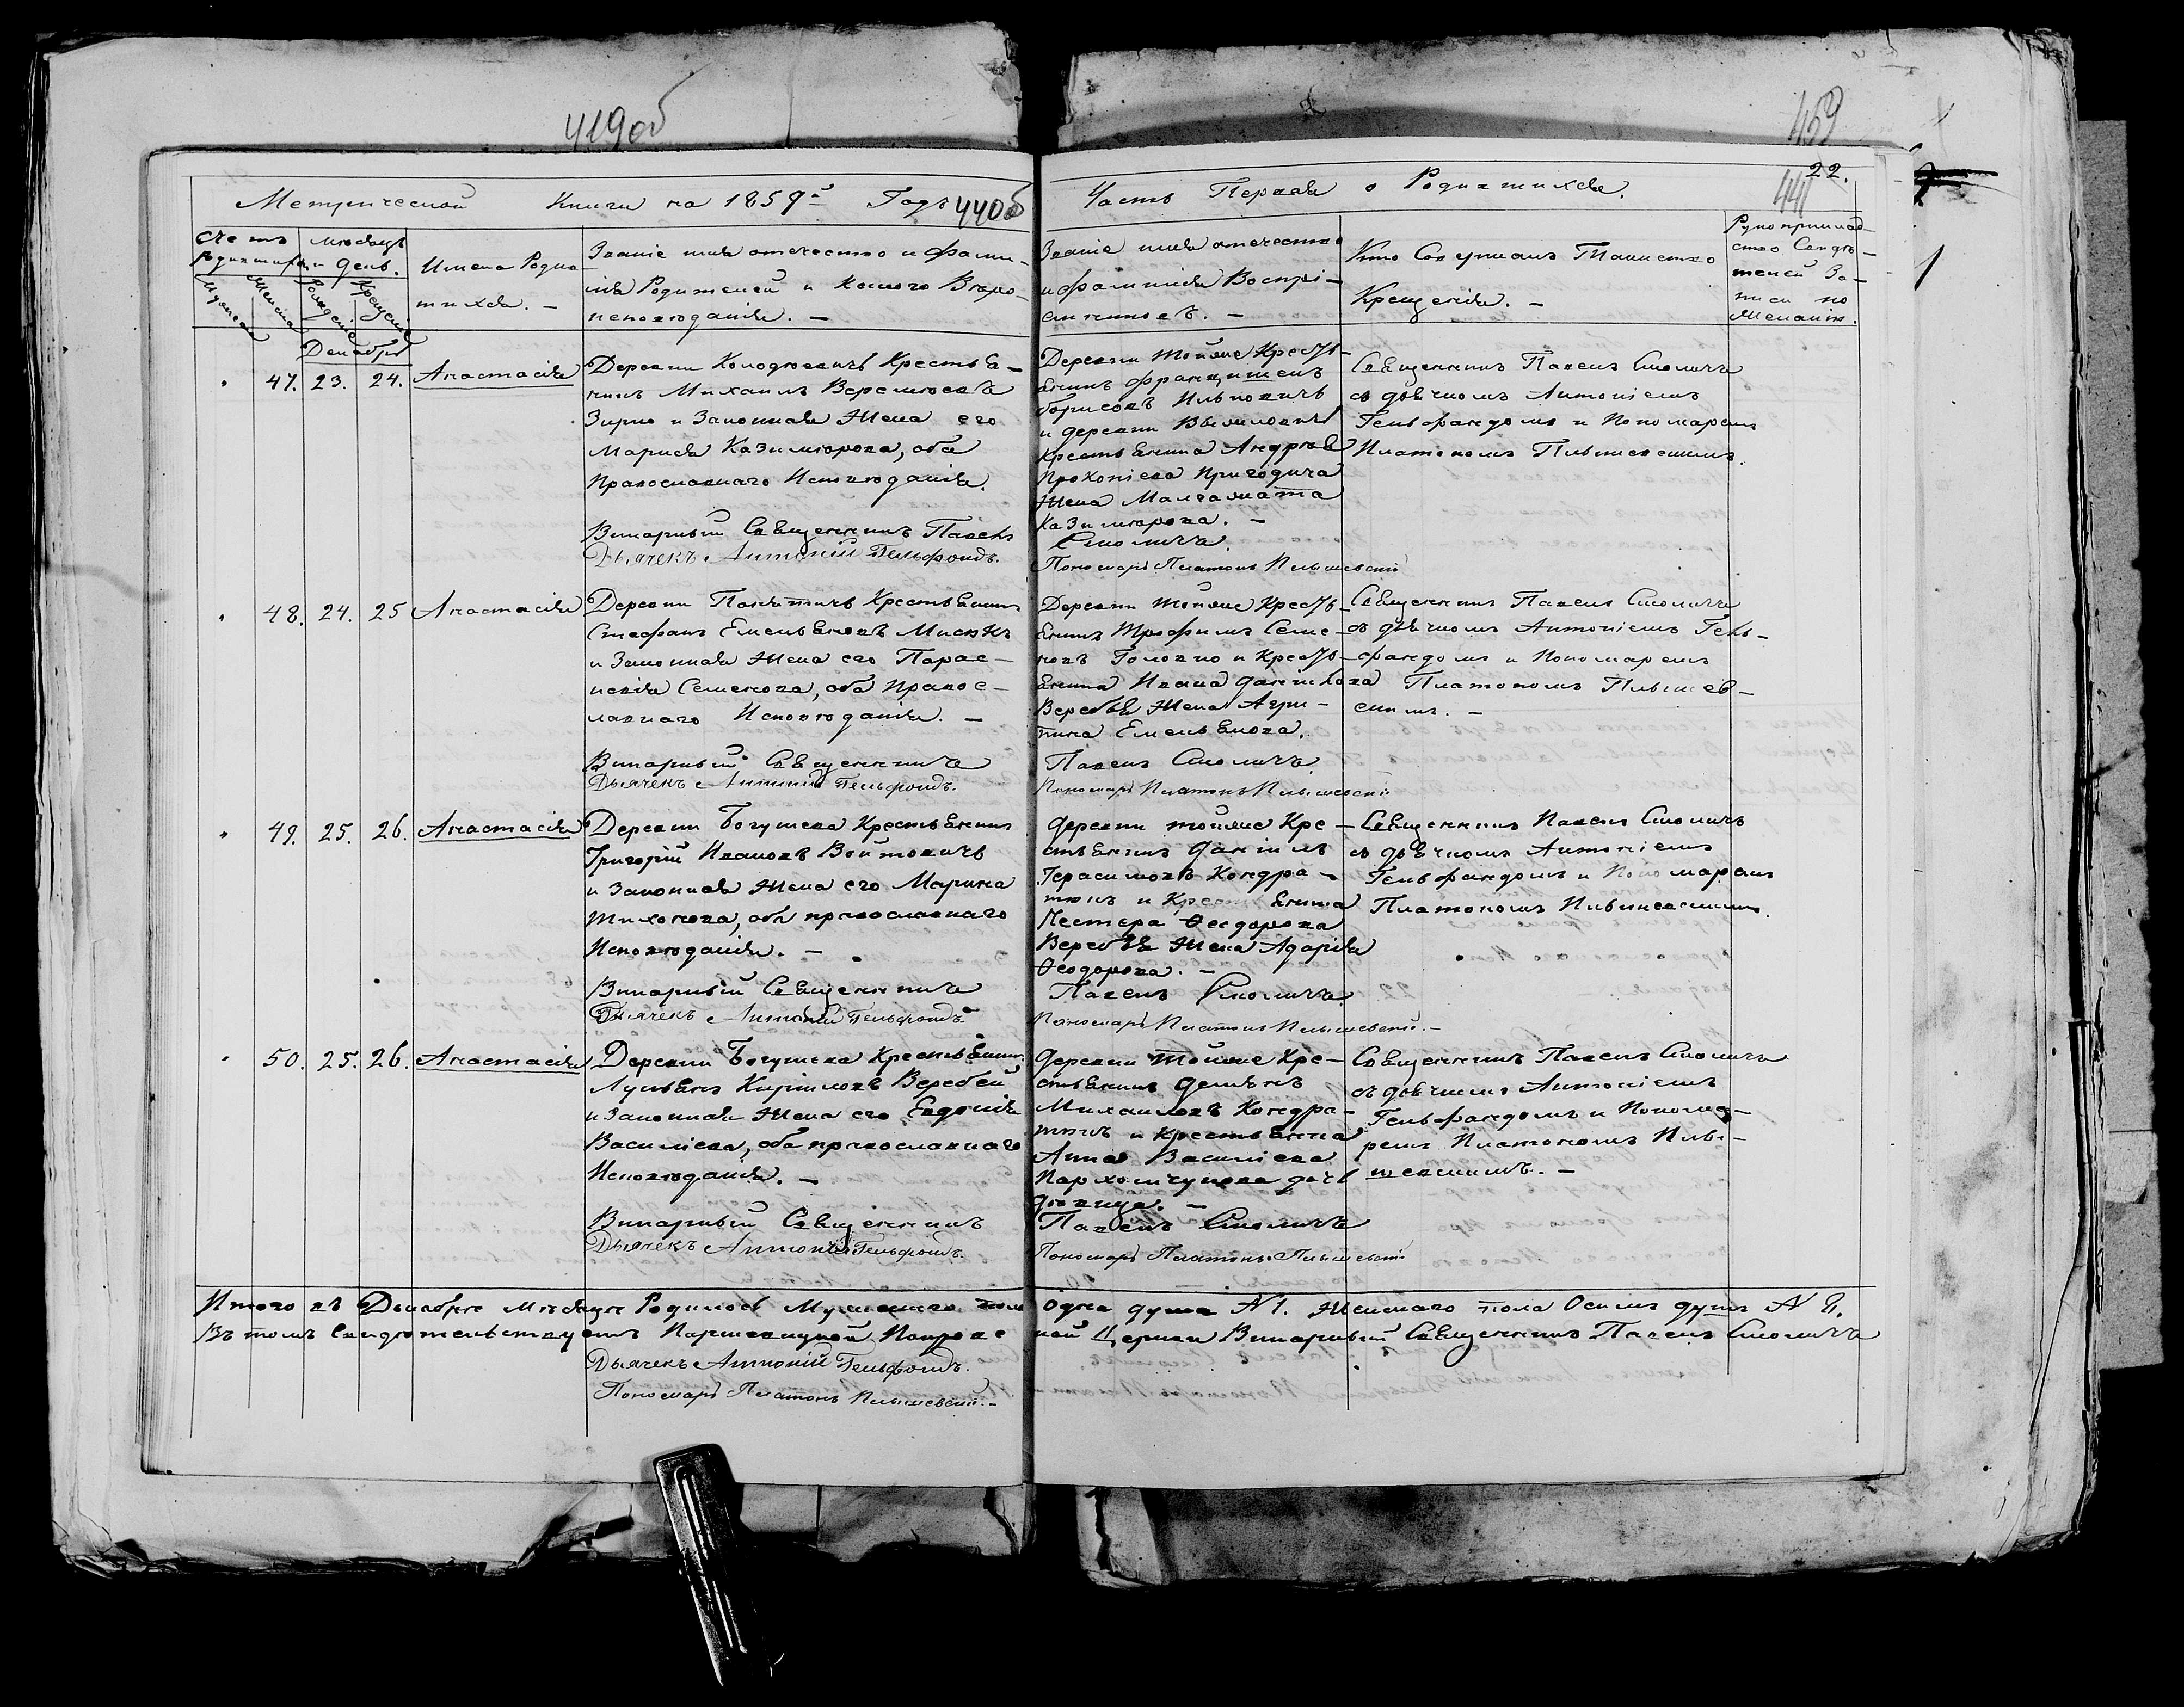 419об
459
22.
441
Метрической Книги на 1859й Годъ 440об
Часть Первая о Родившихся.
Счетъ родившихся
Мужеска
Женска
мѣсяцъ и день.
Рожденіе
Крещеніе
Имена Родив
шихся. —
Званіе имя отечество и фами-
лія Родителей и какого Вѣро-
исповѣданія. —
Званіе имя отечество
и фамилія Воспрі-
емниковъ. —
Кто Совершалъ Таинство
Крещенія. —
Рукоприклад-
ство Свидѣ-
телей За-
писи по
Желанію.
Декабрь
47. 23. 24. Анастасія
Деревни Колодѣевичь Крестья-
нинъ Михаилъ Веремѣевъ
Зирко и Законная Жена его
Марися Казимірова, оба
Православнаго Исповѣданія.
Викарный Священникъ Павелъ
Дьячекъ Антоній Гельфондъ.
Деревни тойже Кресть-
янинъ францишекъ
борисовъ Ильковичъ
и деревни
крестьянина Андрея
Прокопіева Пригодича
Жена Малгожата
Казимірова. —
Смоличъ.
Пономарь Платонъ Пльшевскій
Священникъ Павелъ Смоличъ
съ дьячкомъ Антоніемъ
Гельфандомъ и Пономаремъ
Платономъ Пльшевскимъ.
48. 24. 25 Анастасія
Деревни Крестьянинъ
Стефанъ Емельяновъ Мисюкъ
и Законная Жена его Парас-
кевія Семенова, оба Правос-
лавнаго Исповѣданія. —
Викарный Священникъ
Дьячекъ Антоній Гельфондъ.
Деревни тойже Кресть-
янинъ Трофимъ Семе-
новъ Головко и Кресть-
янина Ивана данилова
Веребья Жена Агри-
пина Емельянова.
Павелъ Смоличъ.
Пономарь Платонъ Пльшевскій
Священникъ Павелъ Смоличъ
съ дьячкомъ Антоніемъ Гель-
фандомъ и Пономаремъ
Платономъ Пльшев-
скимъ. —
49. 25. 26. Анастасія
Деревни Богушева Крестьянинъ
Григорій Ивановъ Войтовичъ
и Законная Жена его Марина
Тихонова, оба православнаго
Исповѣданія. —
Викарный Священникъ
Дьячекъ Антоній Гельфондъ
деревни тойже Кре-
стьянинъ даніилъ
Герасимовъ Кондра-
тюкъ и Крестьянина
Нестера Ѳеодорова
Веребья Жена Адарія
Ѳеодорова. —
Павелъ Смоличъ.
Пономарь Платонъ Пльшевскій. —
Священникъ Павелъ Смоличъ
съ дьячкомъ Антоніемъ
Гельфандомъ и Пономаремъ
Платономъ Пльшевскимъ.
50. 25. 26. Анастасія
Деревни Богушева Крестьянинъ
Лукьянъ Кириловъ Веребей
и Законная Жена его Евдокія
Василіева, оба православнаго
Исповѣданія. —
Викарный Священникъ
Дьячекъ Антоній Гельфондъ.
деревни тойже Кре-
стьянинъ демьянъ
Михаиловъ Кондра-
тюкъ и крестьянка
Анна Василіева
Пархомчукова дочь
дѣвица. —
Павелъ Смоличъ
Пономарь Платонъ Пльшевскій
Священникъ Павелъ Смоличъ
съ дьячкомъ Антоніемъ
Гельфандомъ и Понома-
ремъ Платономъ Пль-
шевскимъ. —
Итого въ Декабрѣ Мѣсяцѣ Родилось Мужескаго пола одна душа N 1. Женскаго пола Осемь душъ N 8.
Въ томъ Свидѣтельствуемъ Паршевицкой Покровской Церкви Викарный Священникъ Павелъ Смоличъ
Дьячекъ Антоній Гельфондъ.
Пономарь Платонъ Пльшевскій. —